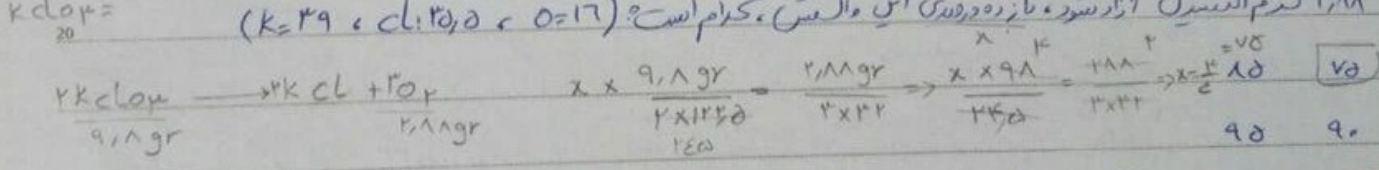 ۲٫۸۸ گرم اکسیژن آزاد شود، بازده درصدی این واکنش، کدام است؟ (K=۳۹ ، cl:۳۵٫۵ ، O=۱۶)
kclo۳=
20
۲kclo۳ → ۲k cl + ۳o۲
۹٫۸gr ۲٫۸۸gr
x × ۹٫۸gr / ۲×۱۲۲٫۵ = ۲٫۸۸gr / ۳×۳۲ => x ×۹۸ / ۲۴٫۵ = ۲۸۸ / ۳×۳۲ => x=۳/۴ =۷۵
۲۴۵
۸۵ ۷۵
۹۵ ۹۰